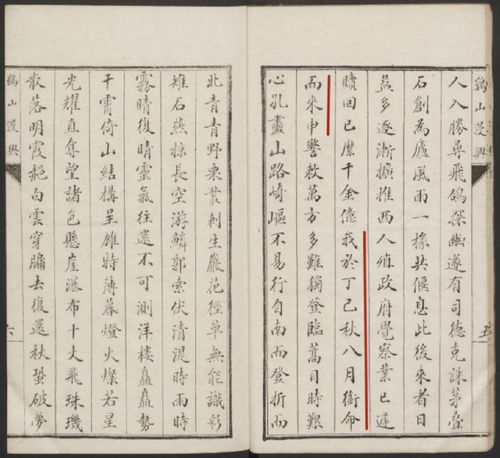 鷄山漫興
五
人入勝尋飛鴿探幽遂有司德克誅茅壘
石創為廬風雨一椽共偃息此後來者日
益多逐漸擴推西人殖政府覺察業已遲
贖回已縻千金億我於丁巳秋八月銜命
而來申警敕萬方多難獨登臨蒿目時艱
心孔畫山路崎嶇不易行自南而登折而
北青青野菜叢刺生巖花徑草無能識彩
雉石燕掠長空游鱗郭索伏清湜時雨時
霧晴復晴靈氣往還不可測洋樓矗矗勢
干霄倚山結構呈雄特薄暮燈火燦若星
光耀直奪望諸色懸崖瀑布十丈飛珠璣
散落明霞赩白雲穿牖去復還秋蛩破夢
鷄山漫興
六